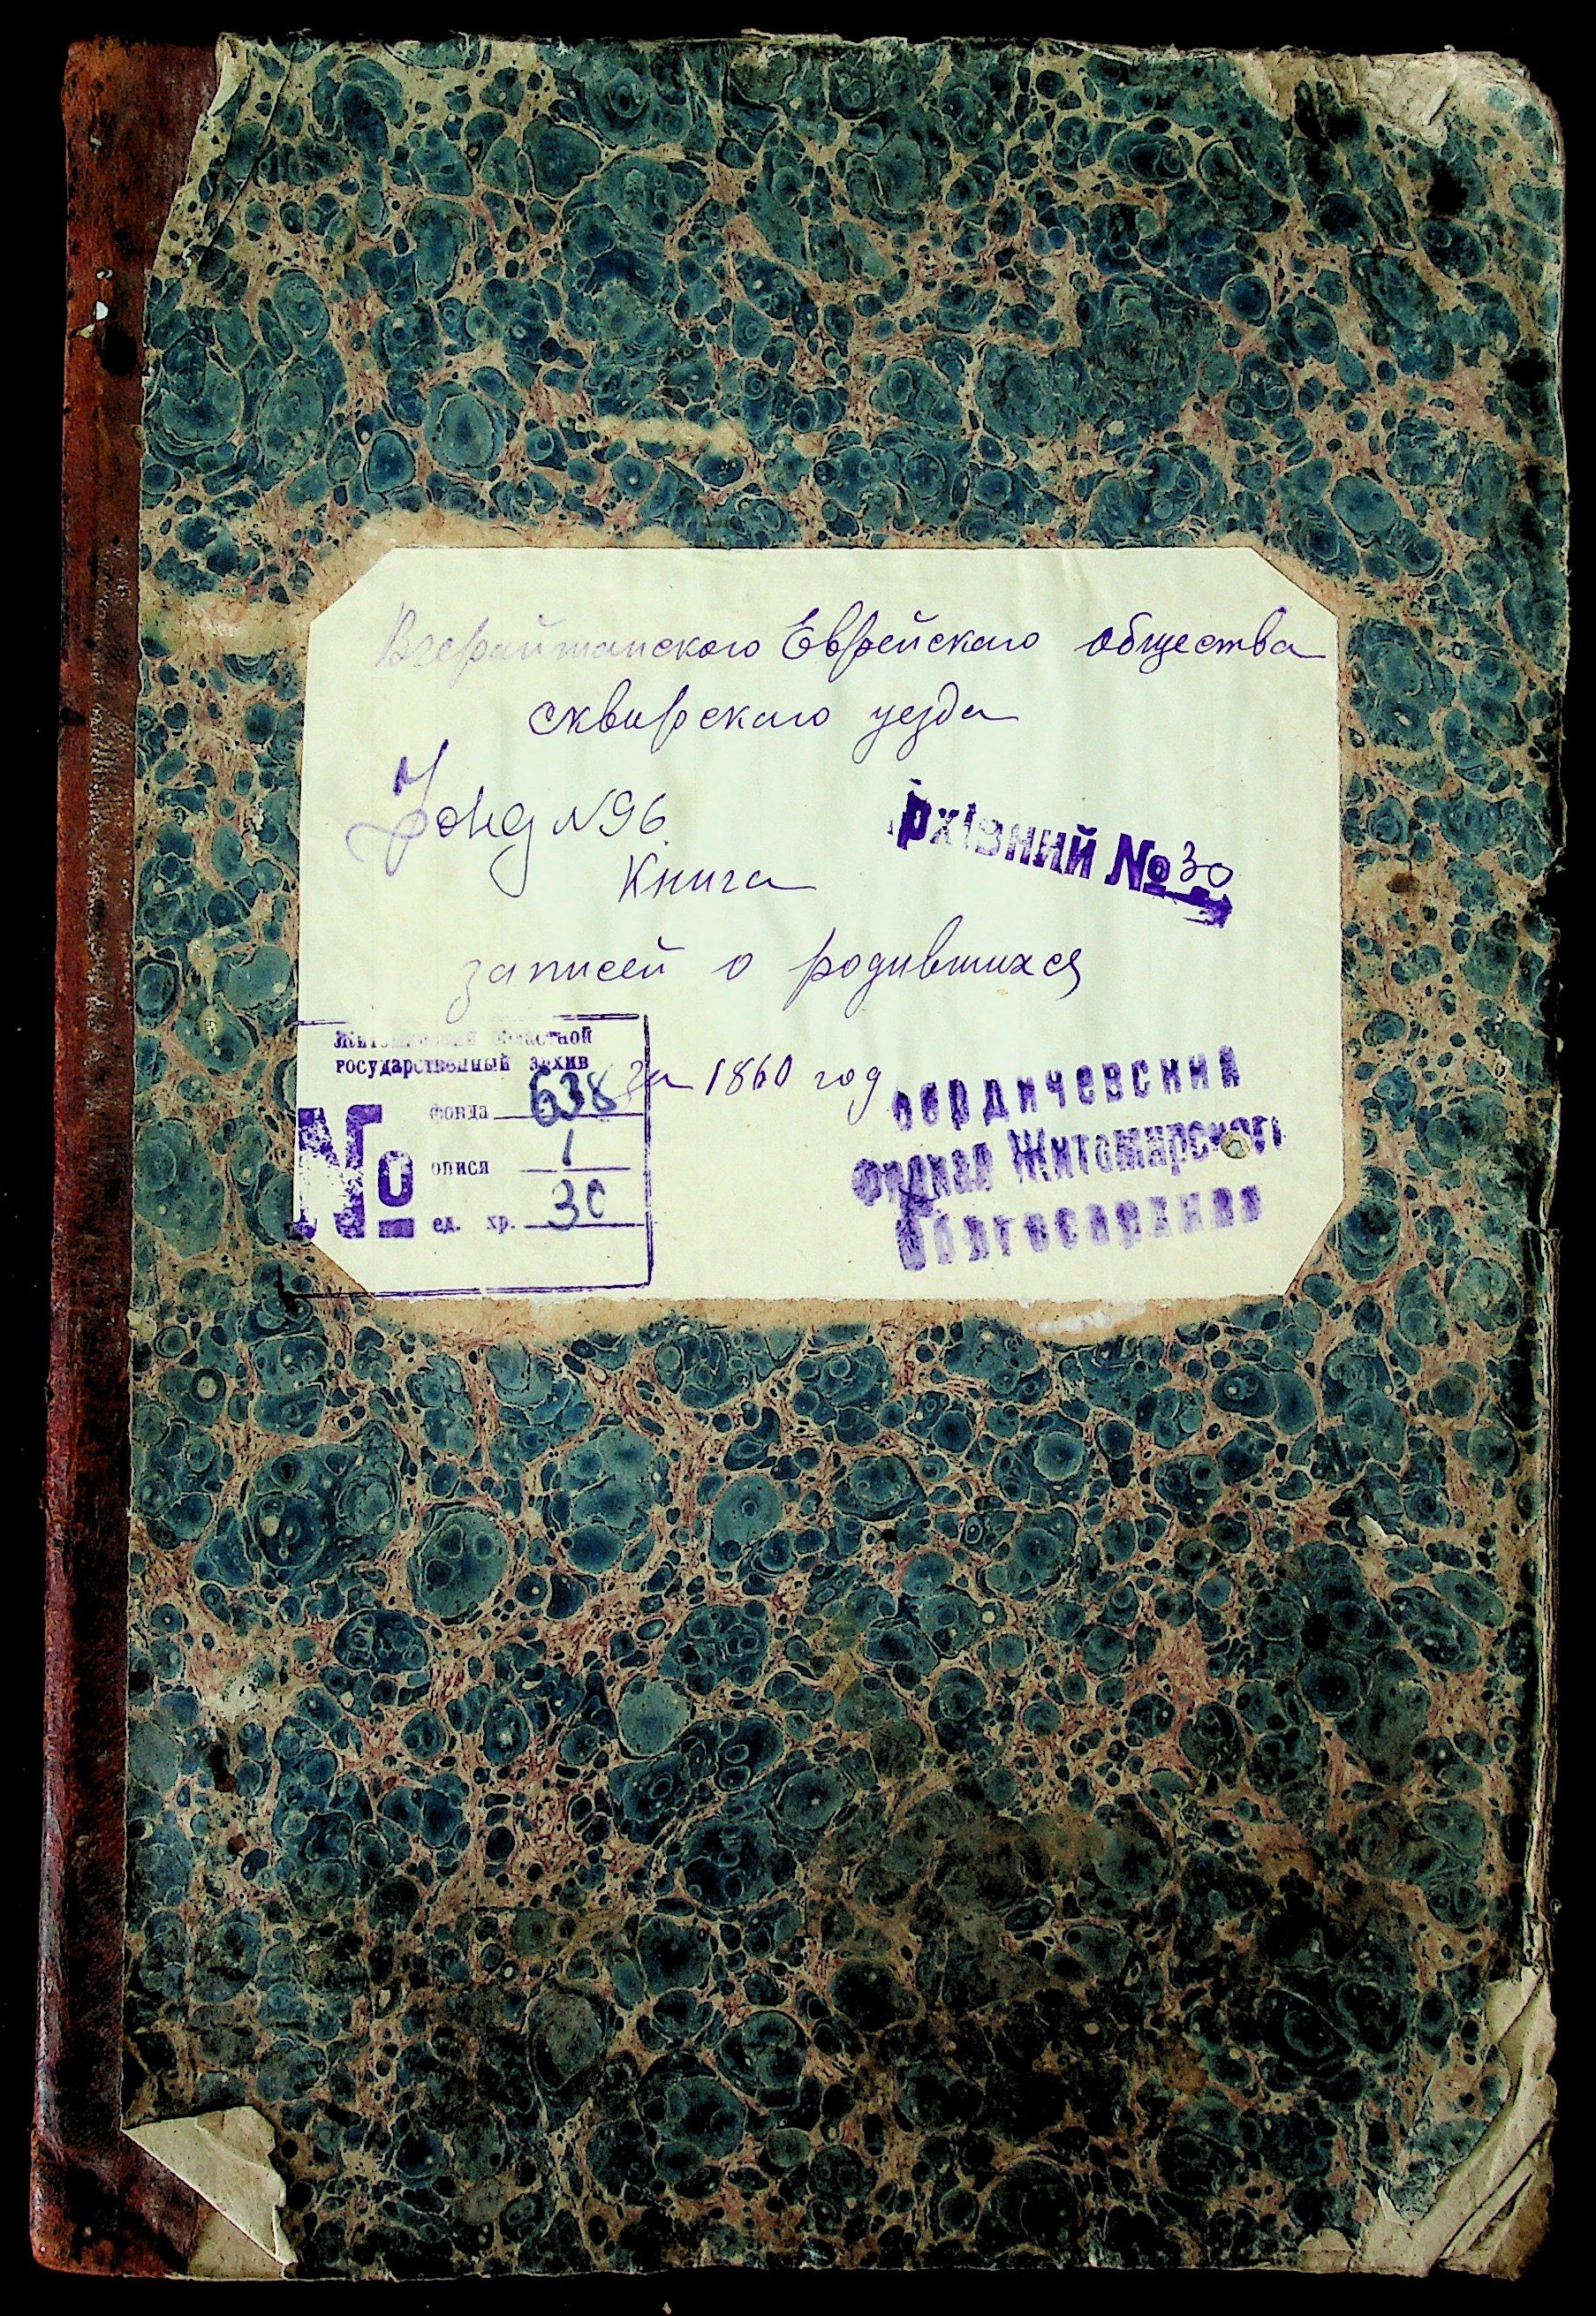 Еврейского общества
сквирского уезда
Фонд №96
рхівний № 30
Книга
записей о родившихся
за 1860 год
Житомирский областной
государственный архив
№
фонда 638
описи 1
ед. хр. 30
бердичевский
филиал Житомирского
облгосархива